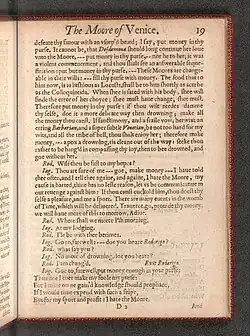 The Moore of Venice. 19
defeate thy fauour with an vsurp'd beard; I say, put money in thy
purse. It cannot be, that Desdemona should long continue her loue
vnto the Moore, --- put money in thy purse, -- nor he to her; it was
a violent commencement, and thou shalt see an answerable seque-
stration: put but money in thy purse. --- These Moores are change-
able in their wills: --- fill thy purse with money. The food that to
him now, is as lushious as Locusts, shall be to him shortly as acerbe
as the Coloquintida. When shee is sated with his body, shee will
finde the error of her choyce; shee must haue change, shee must.
Therefore put money in thy purse: if thou wilt needes damne
thy selfe, doe it a more delicate way then drowning; make all
the money thou canst. If sanctimony, and a fraile vow, betwixt an
erring Barbarian, and a super subtle Venetian, be not too hard for my
wits, and all the tribe of hell, thou shalt enioy her; therefore make
money, --- a pox a drowning, tis cleane out of the way: seeke thou
rather to be hang'd in compassing thy ioy, then to be drowned, and
goe without her.
Rod. Wilt thou be fast to my hopes?
Iag. Thou art sure of me --- goe, make money --- I haue told
thee often, and I tell thee againe, and againe, I hate the Moore, my
cause is hearted, thine has no lesse reason, let vs be communicatiue in
our reuenge against him: If thou canst cuckold him, thou doest thy
selfe a pleasure, and me a sport. There are many euents in the womb
of Time, which will be deliuered. Trauerse, go, prouide thy money,
we will haue more of this to morrow, Adiue.
Rod. Where shall we meete i'th morning.
Iag. At my lodging.
Rod. I'le be with thee betimes.
Iag. Go to, farewell: --- doe you heare Roderigo?
Rod. what say you?
Iag. No more of drowning, doe you heare?
Rod. I am chang'd. Exit Roderigo.
Iag. Goe to, farewell, put money enough in your purse:
Thus doe I euer make my foole my purse:
For I mine owne gain'd knowledge should prophane,
If I would time expend with such a snipe,
But for my sport and profit: I hate the Moore,
D 2 And